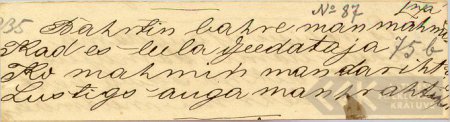 № 87
235 Bahrin bahre man mahmi
Kad es leela zeedataja 75 b
Ko mahmin man darihi
Lustigs auga man krahti
KRATUV